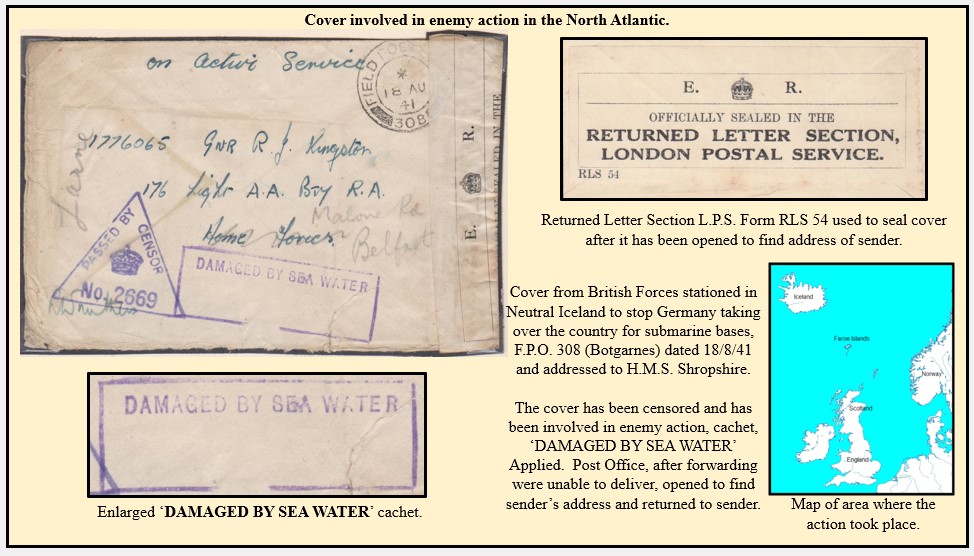 Cover involved in enemy action in the North Atlantic.
on Active Service
FIELD POST
*
18 AU
41
308
1776065 GNR R. J. Kingston
176 Light A.A. Bty R.A.
Home Forces
Larne
Malone Rd
Belfast
PASSED BY CENSOR
No. 2669
DAMAGED BY SEA WATER
E. R.
SEALED IN THE
E. R.
OFFICIALLY SEALED IN THE
RETURNED LETTER SECTION,
LONDON POSTAL SERVICE.
RLS 54
Returned Letter Section L.P.S. Form RLS 54 used to seal cover
after it has been opened to find address of sender.
Cover from British Forces stationed in
Neutral Iceland to stop Germany taking
over the country for submarine bases,
F.P.O. 308 (Botgarnes) dated 18/8/41
and addressed to H.M.S. Shropshire.
The cover has been censored and has
been involved in enemy action, cachet,
‘DAMAGED BY SEA WATER’
Applied. Post Office, after forwarding
were unable to deliver, opened to find
sender’s address and returned to sender.
Iceland
Faroe Islands
Norway
Scotland
England
Map of area where the
action took place.
DAMAGED BY SEA WATER
Enlarged ‘DAMAGED BY SEA WATER’ cachet.